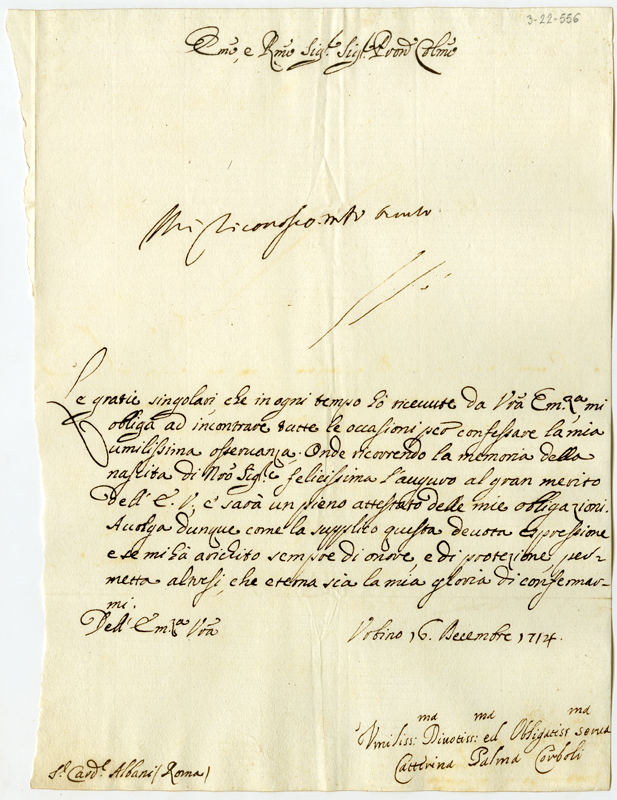 3-22-556
Emo, e Rmo Sigr. Sigr. Pron Colmo
Mi riconosco
Le gratie singolari, che in ogni tempo hò riceuute da Vrã Em.za mi
obliga ad incontrare tutte le occasioni per confessare la mia
umilissima osseruanza. Onde ricorrendo la memoria della
nascita di Nrõ Sigre. felicissima l'auguro al gran merito
dell' E. V., e sarà un pieno attestato delle mie obligazioni.
Accolga dunque come la supplico questa deuota espressione
e se mi hà arichito sempre di onore, e di protezione, per=
metta altresi, che eterna sia la mia gloria di confermar=
mi.
Dell' Em.za Vrã
Vrbino 16. Decembre 1714.
Vmiliss:ma Diuotiss:ma ed Obligatissma serua
Catterina Palma Corboli
Sr. Cardl. Albani (Roma)